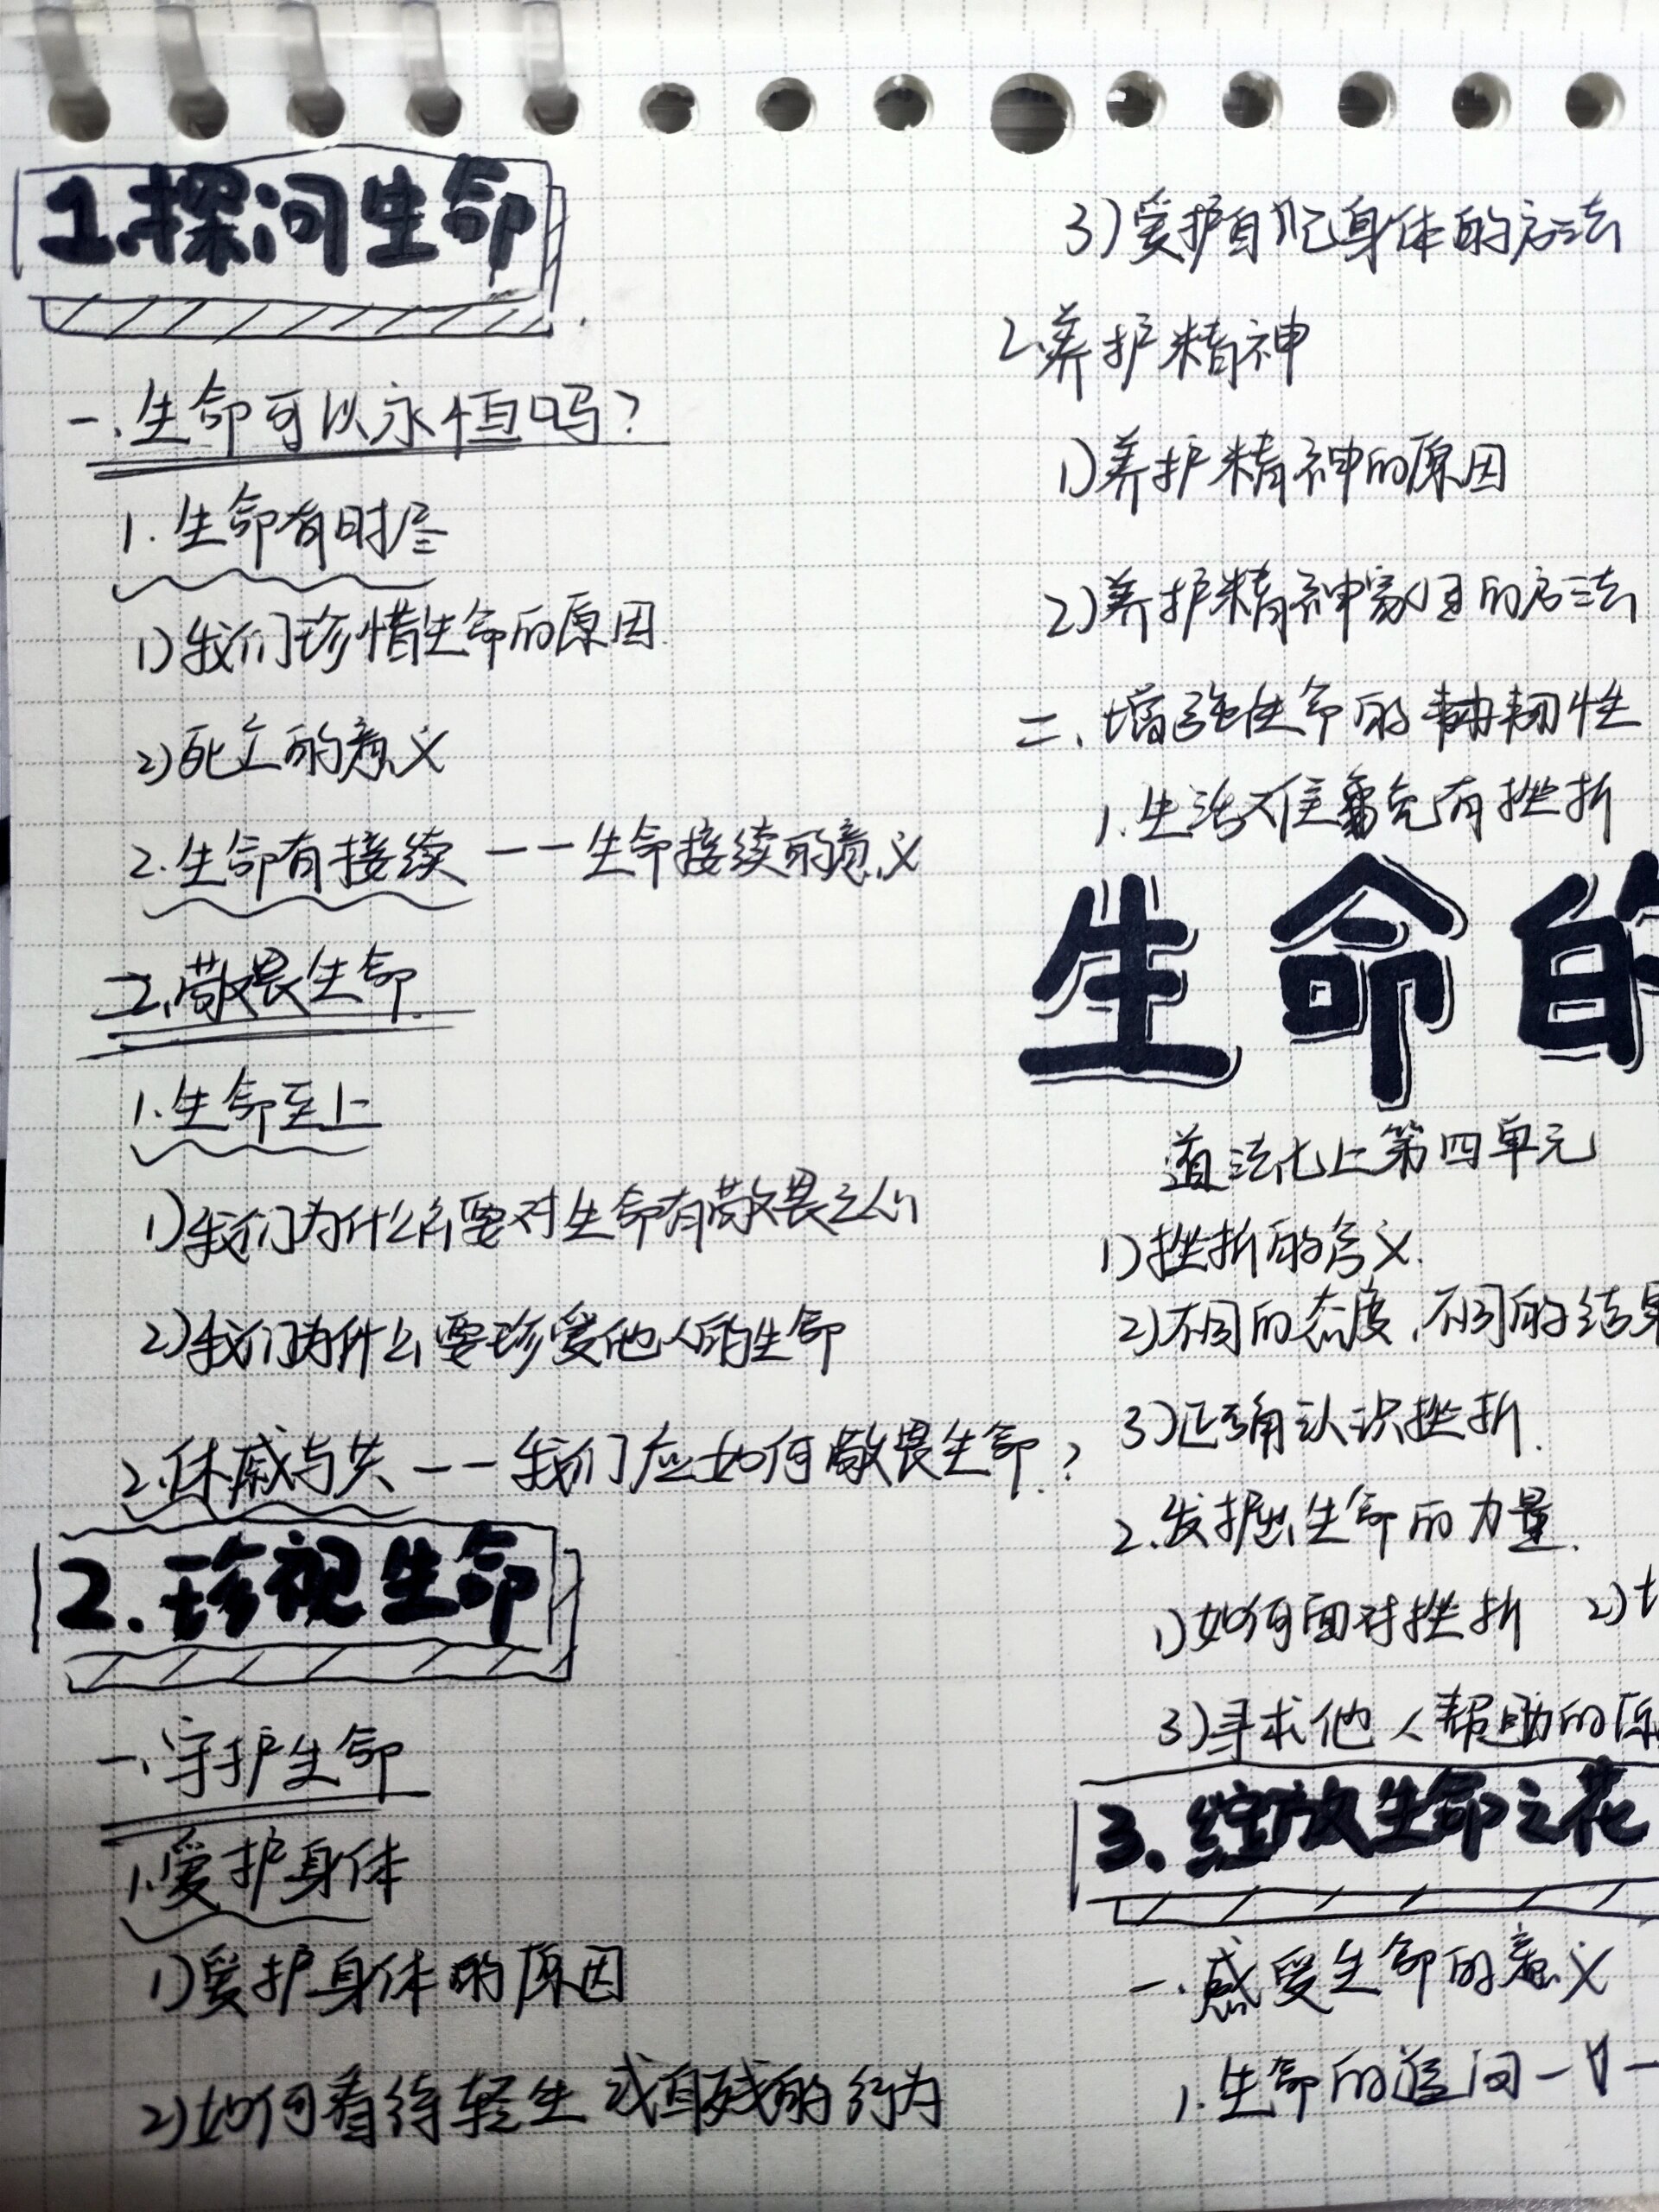 1.探问生命
一.生命可以永恒吗?
1.生命有时尽
1)我们珍惜生命的原因
2)死亡的意义
2.生命有接续——生命接续的意义
二.敬畏生命
1.生命至上
1)我们为什么需要对生命有敬畏之心
2)我们为什么要珍爱他人的生命
2.休戚与共——我们应如何敬畏生命?
2.珍视生命
一.守护生命
1.爱护身体
1)爱护身体的原因
2)如何看待轻生或自残的行为
3)爱护自己身体的方法
2.养护精神
1)养护精神的原因
2)养护精神家园的方法
二.增强生命的韧性
1.生活难免有挫折
生命的
道法七上第四单元
1)挫折的含义.
2)不同的态度,不同的结果
3)正确认识挫折.
2.发掘生命的力量.
1)如何面对挫折 2)
3)寻求他人帮助的原
3.绽放生命之花
一.感受生命的意义
1.生命的追问——